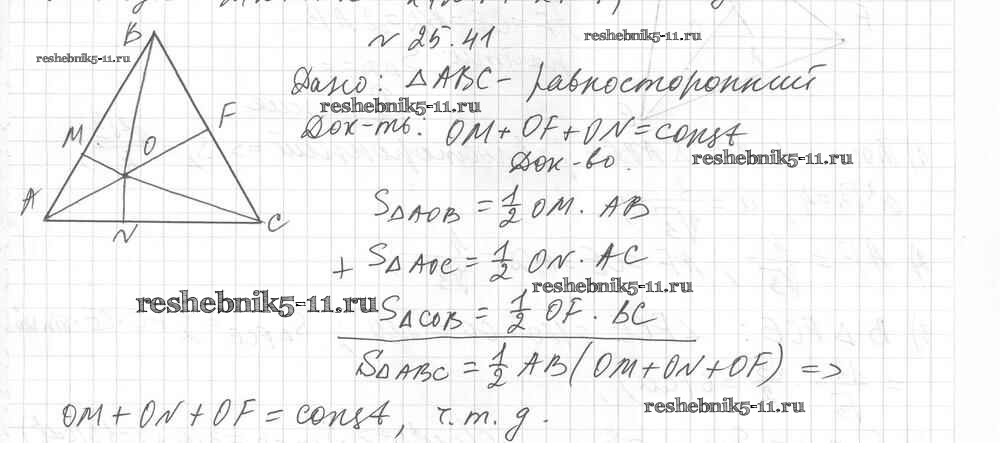 № 25.41
reshebnik5-11.ru
reshebnik5-11.ru
B
Дано: △ABC - равносторонний
reshebnik5-11.ru
F
M
O
Док-ть: OM + OF + ON = const
Док-во.
reshebnik5-11.ru
A
C
N
S△AOB = 1/2 OM · AB
+ S△AOC = 1/2 ON · AC
reshebnik5-11.ru
reshebnik5-11.ru
S△COB = 1/2 OF · BC
S△ABC = 1/2 AB (OM + ON + OF) =>
reshebnik5-11.ru
OM + ON + OF = const, ч.т.д.